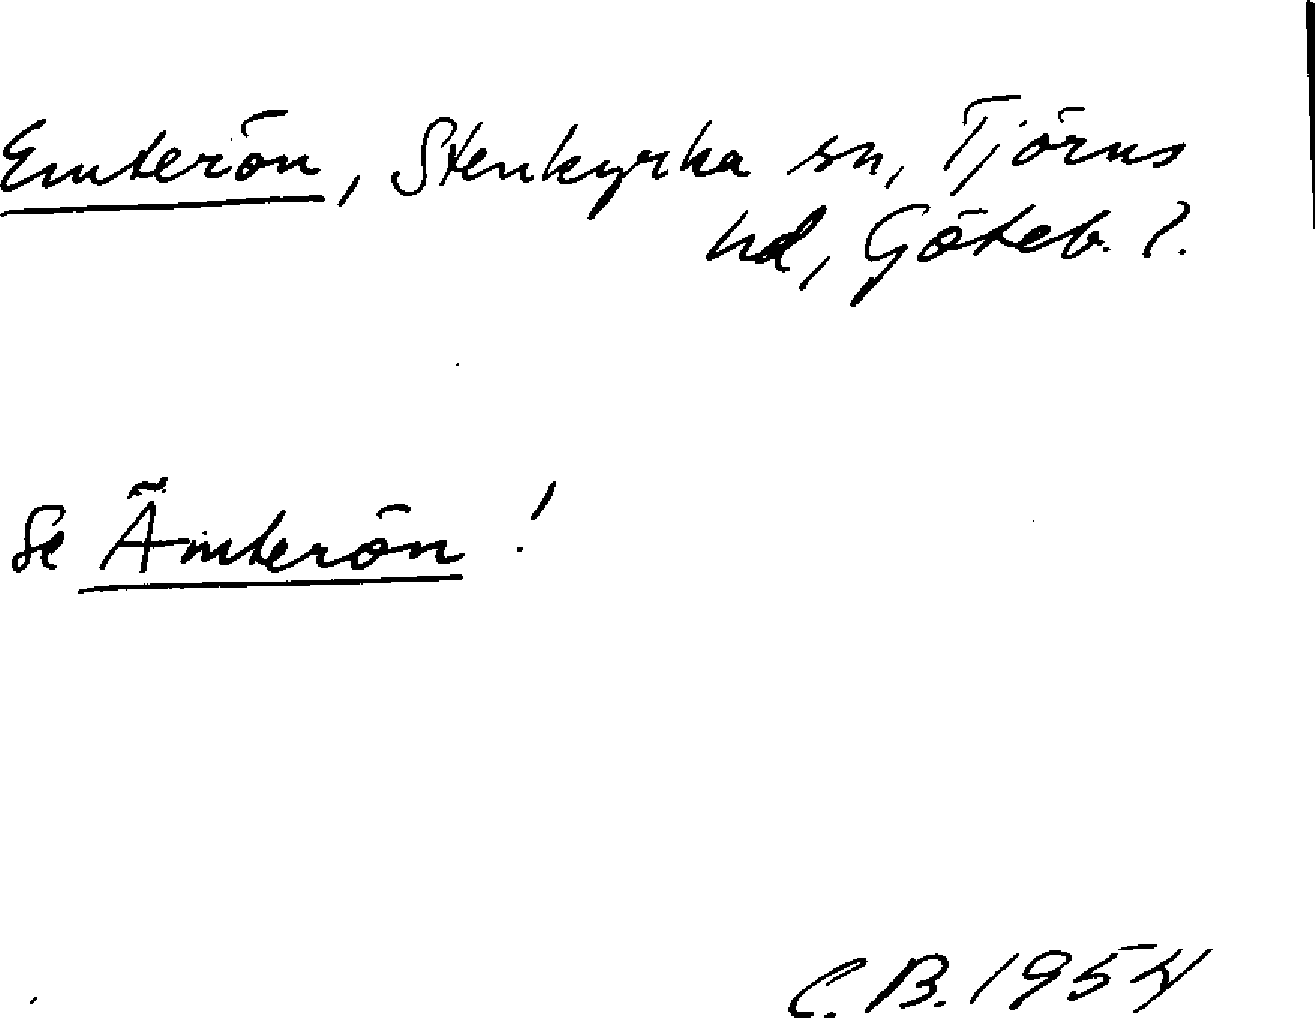 Emterön, Stenkyrka sn, Tjörns
hd, Göteb. l.
Se Ämterön!
C. B. 1954